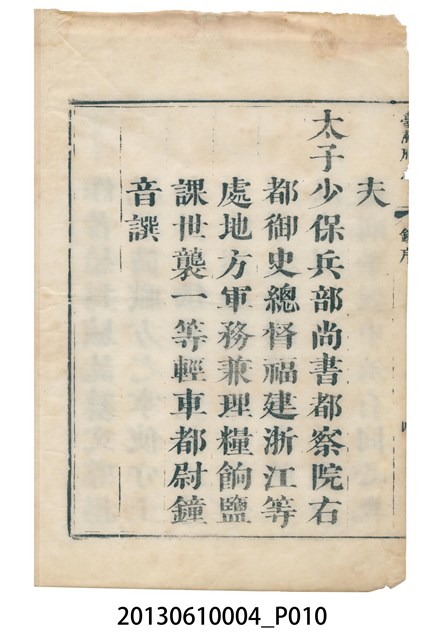 夫
太子少保兵部尚書都察院右
都御史總督福建浙江等
處地方軍務兼理糧餉鹽
課世襲一等輕車都尉鐘
音譔
20130610004_P010